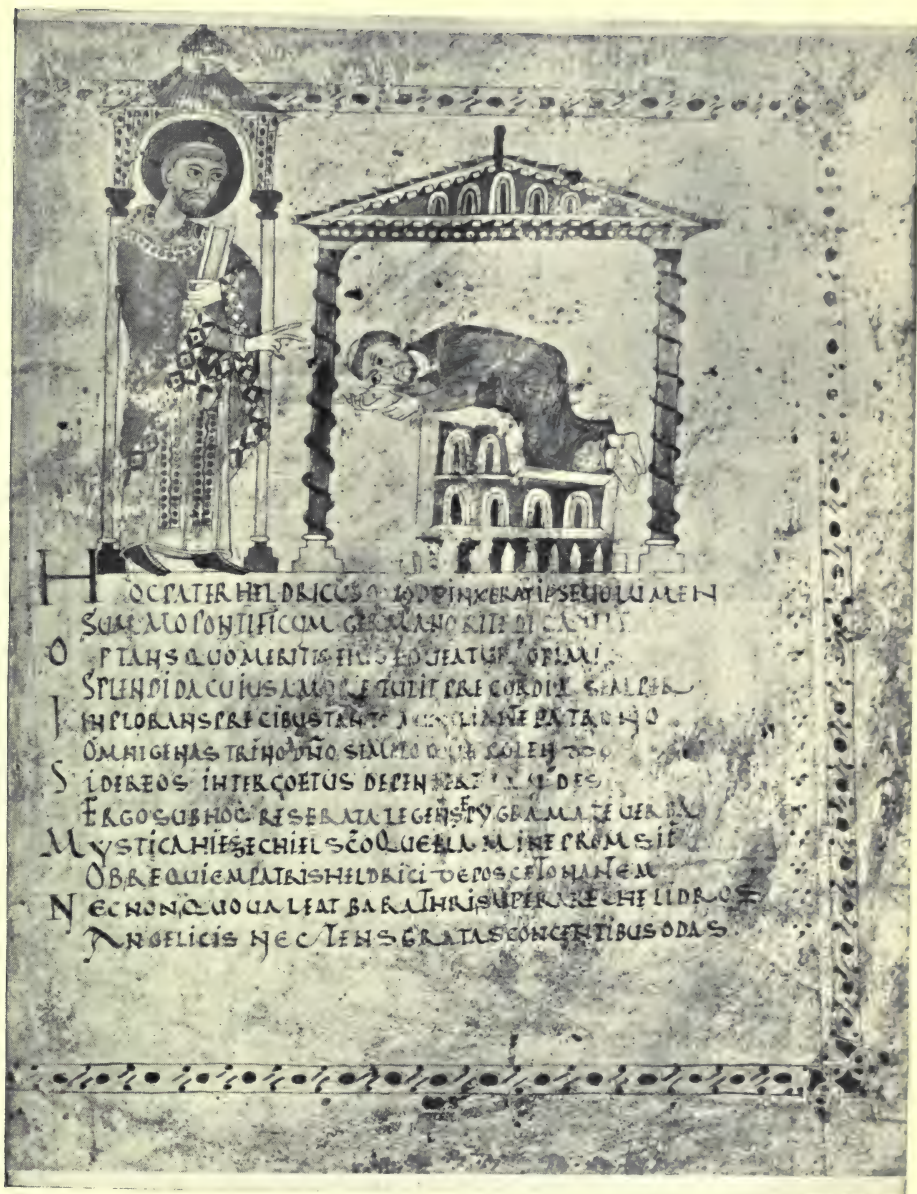 HOC PATER HELDRICUS QUOD PINXERAT IPSE UOLUMEN
SUMMO PONTIFICUM GERMANO RITE DICAUIT
OPTANS QUO MERITIS EIUS OPIMI
SPLENDIDA CUIUS AMORE TULIT PRECORDIA SEMPER
INPLORANS PRECIBUS TANTO PATRONO
OMNIGENAS TRINO DÑO SIMPLO
SIDEREOS INTER COETUS
ERGO SUB HOC RESERATA LEGENS EPYGRAMATE UERBA
MYSTICA HIESECHIEL SCO QUE FLAMINE PROMSIT
OB REQUIEM PATRIS HELDRICI DEPOSCE TONANTEM
NEC NON QUO UALEAT BARATHRI SUPERARE CHELIDROS
ANGELICIS NECTENS GRATAS CONCENTIBUS ODAS